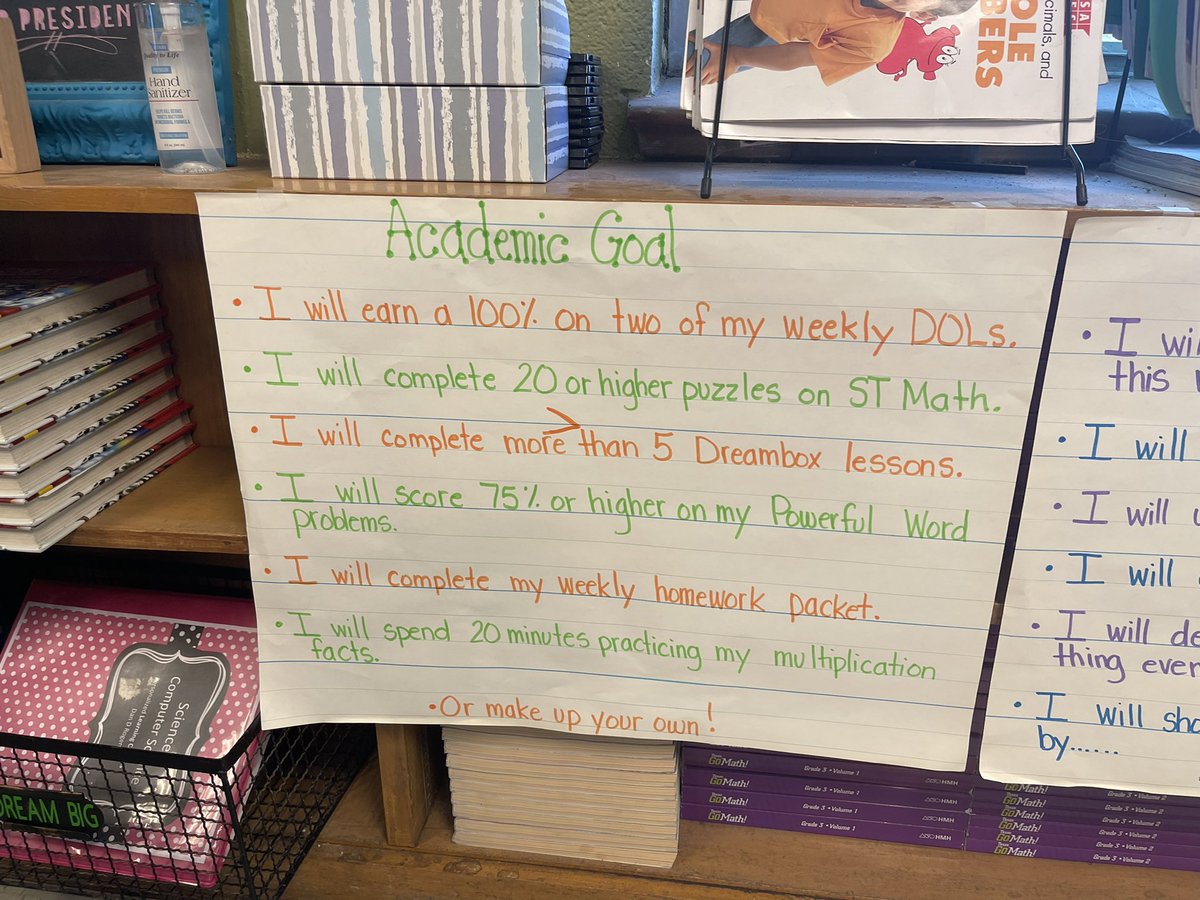 PRESIDEN
Quality to Life
Hand
Sanitizer
cimals, and
OLE
BERS
Academic Goal
• I will earn a 100% on two of my weekly DOLs.
• I will complete 20 or higher puzzles on ST Math.
>
• I will complete more than 5 Dreambox lessons.
• I will score 75% or higher on my Powerful Word
problems.
• I will complete my weekly homework packet.
• I will spend 20 minutes practicing my multiplication
facts.
• Or make up your own!
• I wil
this
• I will
• I will u
• I will
• I will de
thing ever
• I will sha
by......
Science
Computer Sc
DREAM BIG
GO Math! Grade 3 • Volume 1 HMH
GO Math! Grade 3 • Volume 1 HMH
GO Math! Grade 3 • Volume 1 HMH
GO Math! Grade 3 • Volume 1 HMH
GO Math! Grade 3 • Volume 2
GO Math! Grade 3 • Volume 2
GO Math! Grade 3 • Volume 2
GO Math! Grade 3 • Volume 2
GO Math! Grade 3 • Volume 2